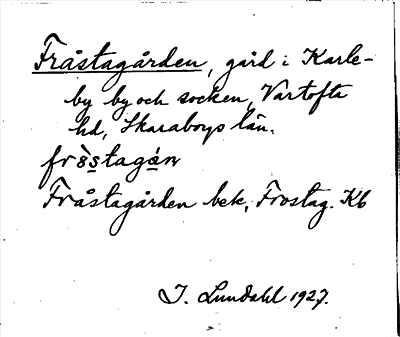 Fråstagården, gård i Karle-
by by och socken, Vartofta
hd, Skaraborgs län.
Fråstagården bek., Frostag. Kb
I. Lundahl 1927.